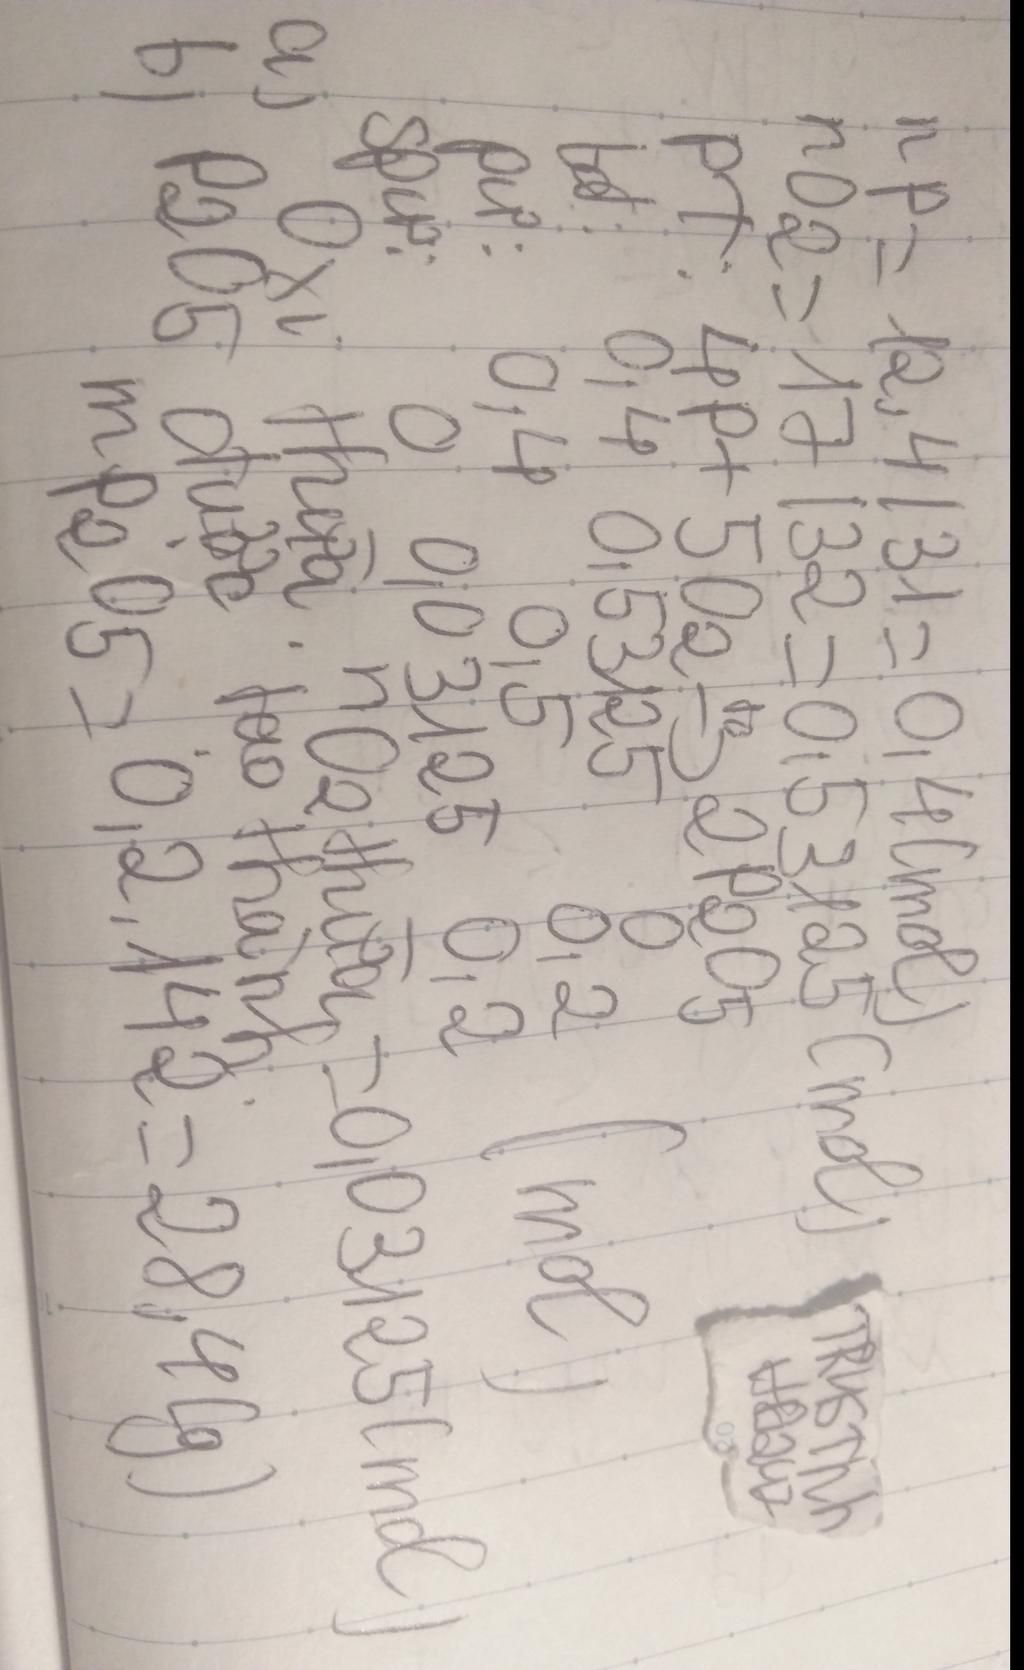 nP = 12,4 / 31 = 0,4 (mol)
nO2 = 17 / 32 = 0,53125 (mol)
PT: 4P + 5O2 -to-> 2P2O5
bđ: 0,4 0,53125 0
pư: 0,4 0,5 0,2 (mol)
spư: 0 0,03125 0,2
a) Oxi thừa. nO2 thừa = 0,03125 (mol)
b) P2O5 được tạo thành.
mP2O5 = 0,2.142 = 28,4 (g)
TRUSTHY